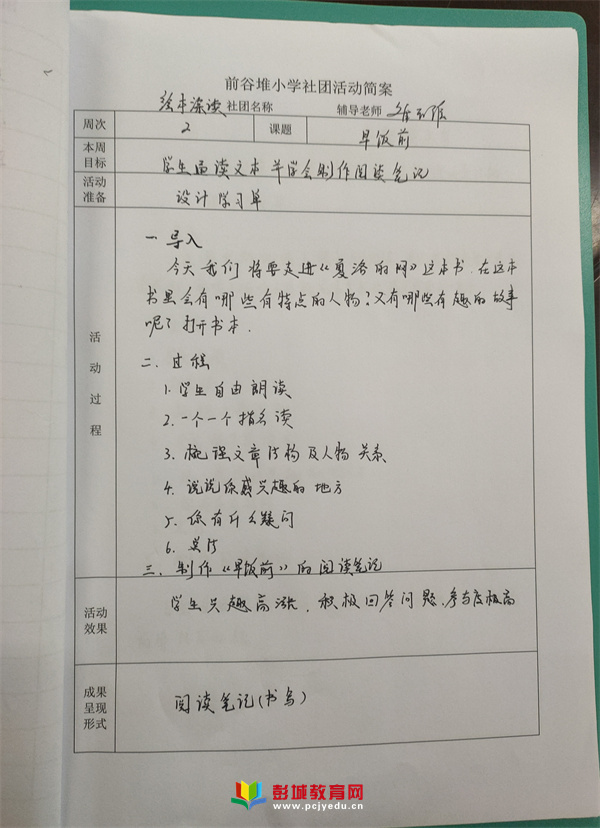 前谷堆小学社团活动简案
绘本深读 社团名称 辅导老师
周次 2 课题 早饭前
本周目标 学生品读文本 并学会制作阅读笔记
活动准备 设计学习单
活动过程
一 导入
今天我们将要走进《夏洛的网》这本书. 在这本
书里会有哪些有特点的人物?又有哪些有趣的故事
呢?打开书本.
二. 过程
1. 学生自由朗读
2. 一个一个指名读
3. 梳理文章结构及人物关系
4. 说说你感兴趣的地方
5. 你有什么疑问
6. 总结
三. 制作《早饭前》的阅读笔记
活动效果 学生兴趣高涨, 积极回答问题, 参与度极高
成果呈现形式 阅读笔记(书写)
彭城教育网
www.pcjyedu.cn